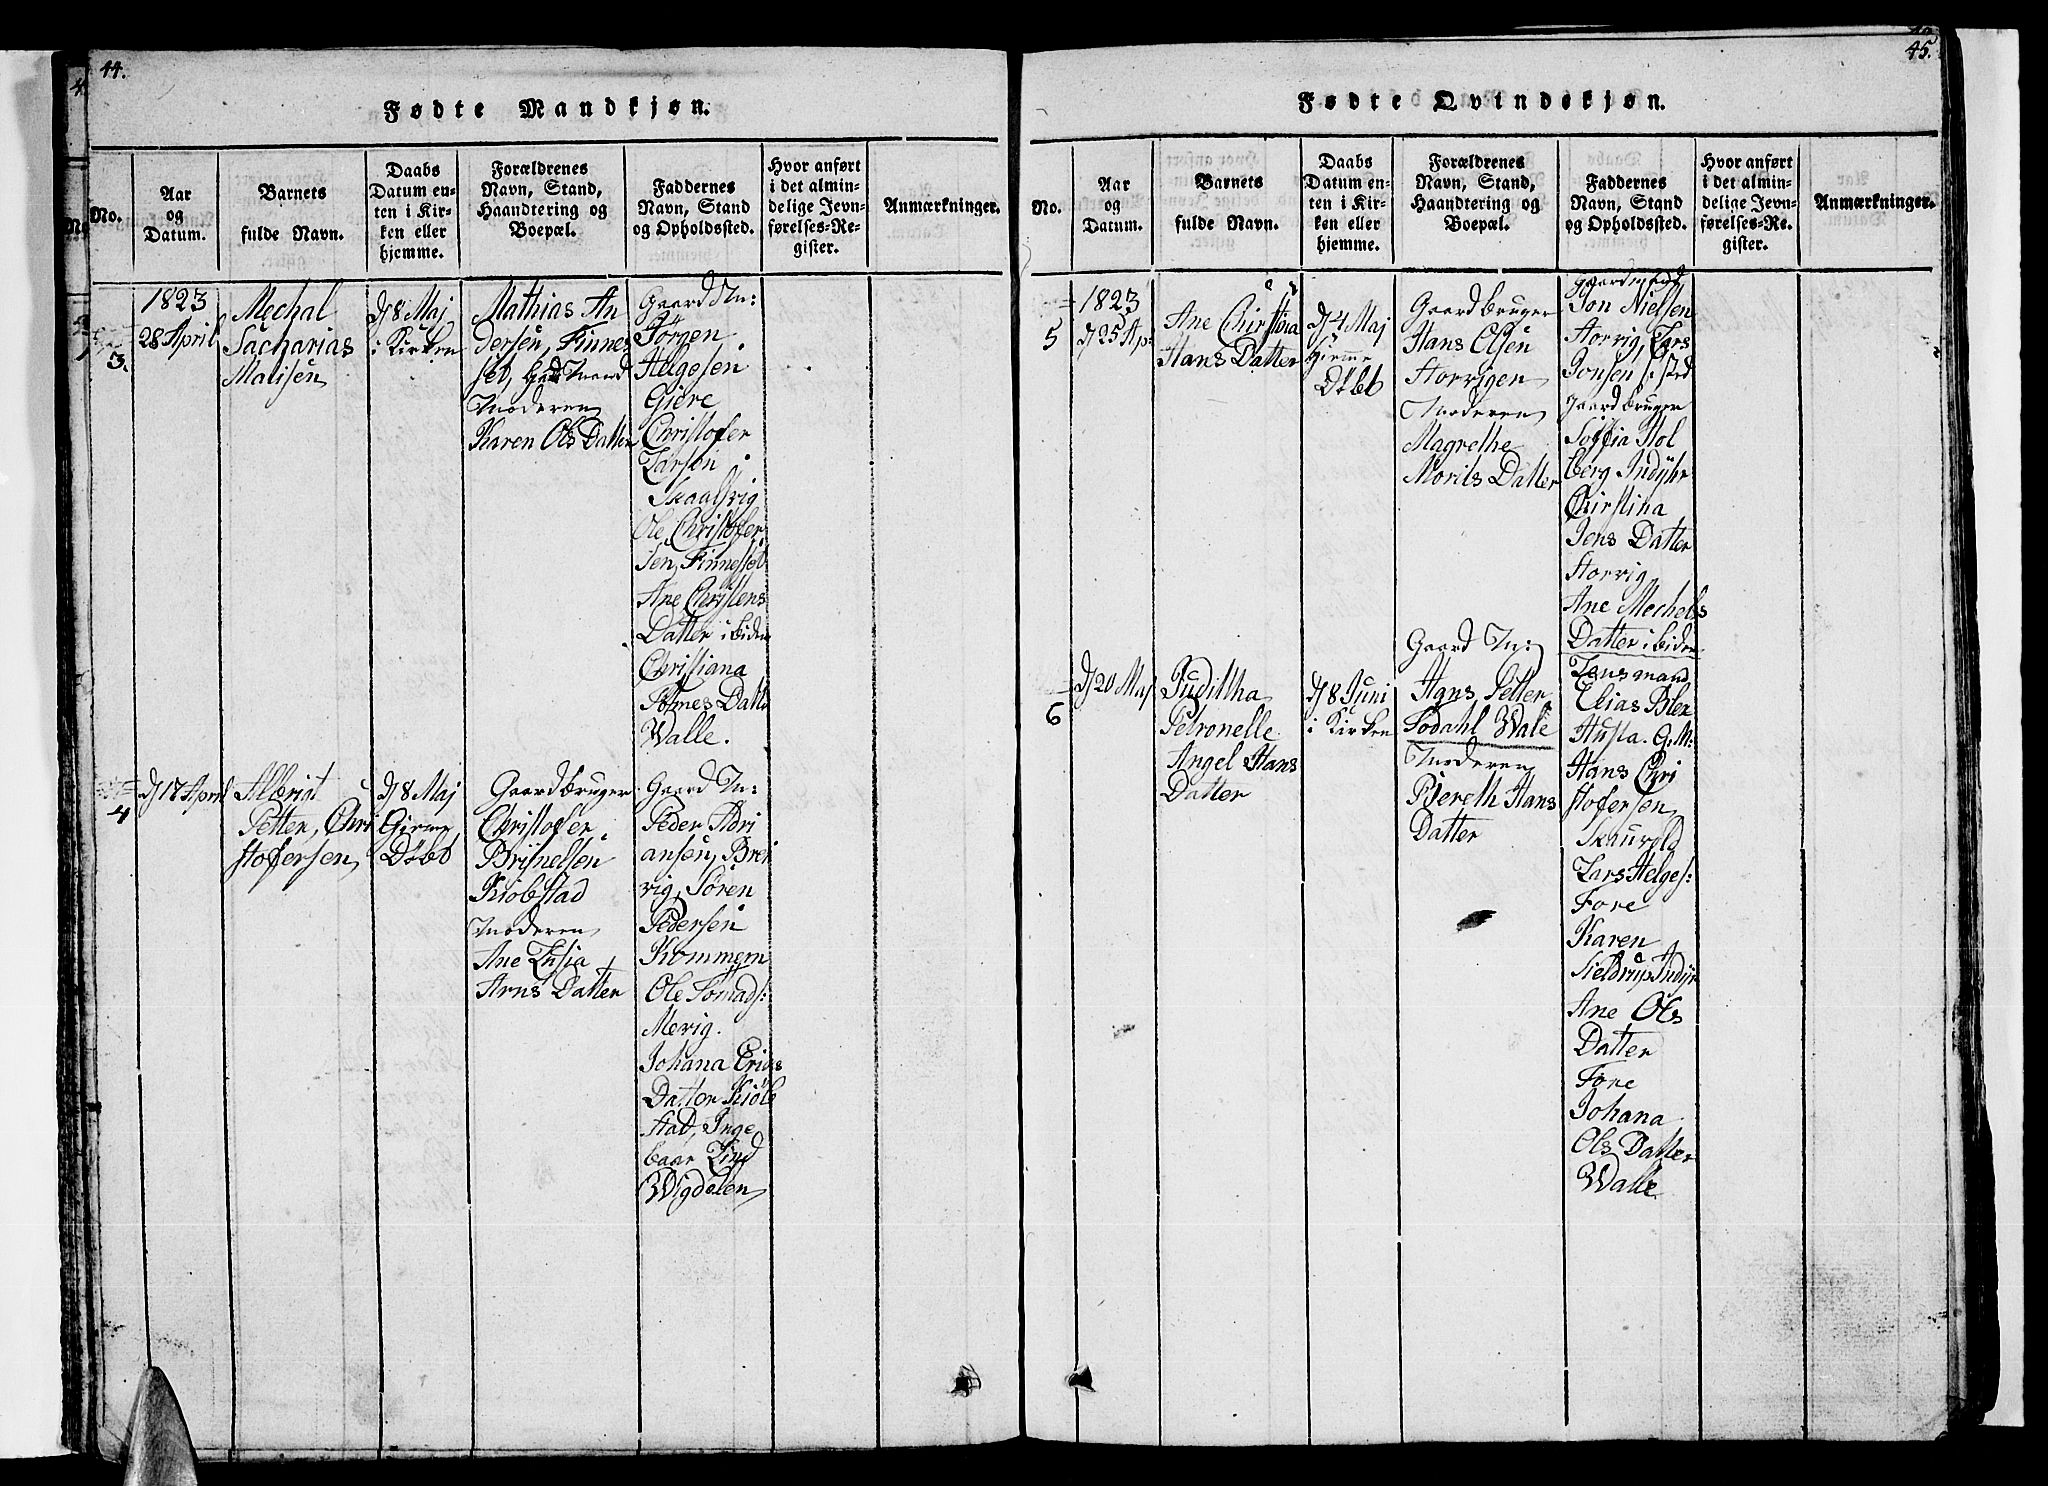 44.
Fødte Mandkjøn.
No.
Aar
og
Datum.
Barnets
fulde Navn.
Daabs
Datum en-
ten i Kir-
ken eller
hjemme.
Forældrenes
Navn, Stand,
Haandtering og
Boepæl.
Faddernes
Navn, Stand
og Opholdssted.
Hvor anført
i det almin-
delige Jevn-
førelses-Re-
gister.
Anmærkninger.
3.
1823
28 April
Mechal
Sacharias
Matisen
d 8 Maj
i Kirken
Mathias An
dersen, Finnes
set,
Moderen
Karen Ols Datter
Gaard M:
Jörgen
Helgesen
Giere
Christofer
Larsen
Skaalsvig
Ole Christofer
sen, Finneset
Ane Christens
Datter ibiden
Christiana
Tomes Datter
Walle.
4
d 17 April
Albrigt
Petter, Chri
stofersen
d 8 Maj
Giemme
Döbt
Gaardbruger
Christofer
Brijnelsen
Kiobstad
Moderen
Ane Lusia
Arns Datter
Gaard M:
Peder Adri
ansen, Brei
vig, Sören
Pedersen
Kommem
Ole Tomads:
Mevig.
Johana Erics
Datter Kiöb
stad, Inge
baar Lind
Wigdelen
45.
Fødte Qvindekjøn.
No.
Aar
og
Datum.
Barnets
fulde Navn.
Daabs
Datum en-
ten i Kir-
ken eller
hjemme.
Forældrenes
Navn, Stand,
Haandtering og
Boepæl.
Faddernes
Navn, Stand
og Opholdssted.
Hvor anført
i det almin-
delige Jevn-
førelses-Re-
gister.
Anmærkninger.
5
1823
d 25 Ap:
Ane Christina
Hans Datter
d 4 Maj
Hiemme
Döbt
Gaardbruger
Hans Olsen
Storvigen
Moderen
Magrethe
Morits Datter
Jon Nielsen
Storvig, Lars
Jonsen
Gaardbruger
Soffia Hol
berg Indÿhr
Christina
Jens Datter
Storvig
Ane Mechels
Datter ibiden
6
d 20 Maj
Judittha
Petronelle
Angel Hans
Datter
d 8 Juni
i Kirken
Gaard M:
Hans Petter
Södahl Wale
Moderen
Bereth Hans
Datter
Lensmand
Elias Blen
Husta. G. M:
Hans Chri
stofersen
Skauvold
Lars Helges:
Fore
Karen
Sieldrup Indÿr
Ane Ols
Datter
Fore
Johana
Ols Datter
Walle